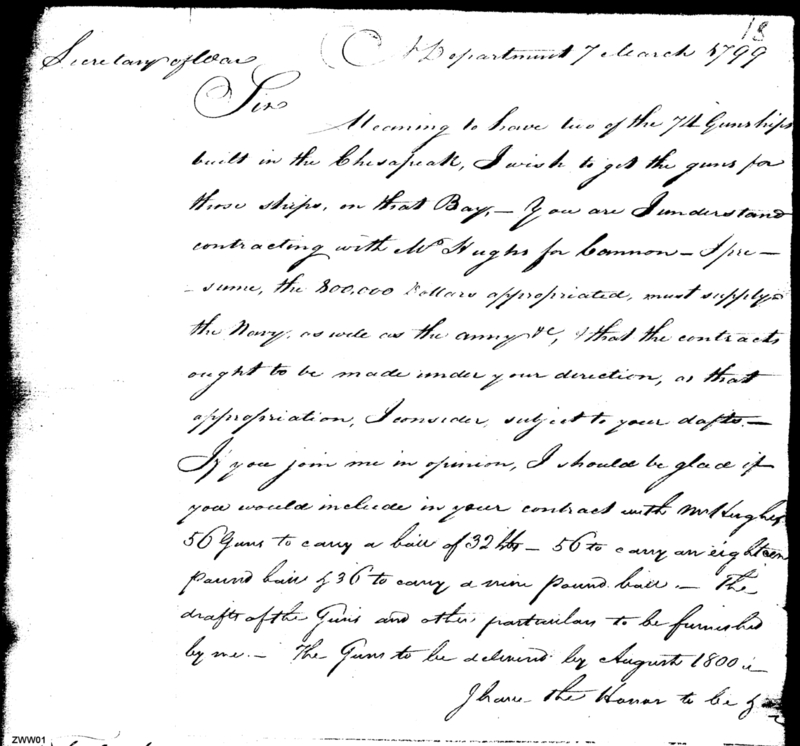 18
Secretary of War
N Department 7 March 1799
Sir
Meaning to have two of the 74 Gunships
built in the Chesapeak, I wish to get the guns for
those ships, on that Bay,— You are I understand
contracting with Mr Hughs for Cannon— I pre—
—sume, the 800,000 Dollars appropriated, must supply
the Navy, as well as the army &c, & that the contracts
ought to be made under your direction, as that
appropriation, I consider, subject to your drafts.—
If you join me in opinion, I should be glad if
you would include in your contract with Mr Hughes
56 Guns to carry a ball of 32 lbs— 56 to carry an eighteen
pound ball & 36 to carry a nine pound ball.— The
drafts of the Guns and other particulars to be furnished
by me.— The Guns to be delivered by August 1800.—
I have the Honor to be &c
ZWW01